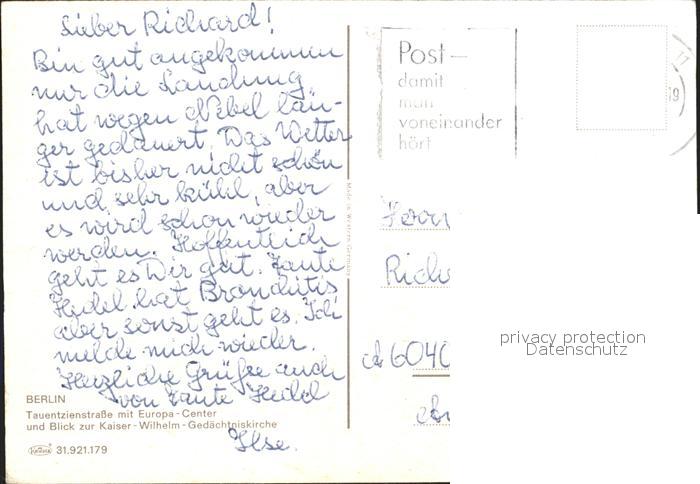 Lieber Richard!
Bin gut angekommen
nur die Landung
hat wegen Nebel län-
ger gedauert. Das Wetter
ist bisher nicht schön
und sehr kühl, aber
es wird schon wieder
werden. Hoffentlich
geht es Dir gut. Tante
Hedel hat Bronchitis
aber sonst geht es. Ich
melde mich wieder.
Herzliche Grüße auch
von Tante Hedel
Ilse.
BERLIN
Tauentzienstraße mit Europa-Center
und Blick zur Kaiser-Wilhelm-Gedächtniskirche
Krüger 31.921.179
Made in Western Germany
Post-
damit
man
voneinander
hört
17
19
Herrn
Rich
6040
privacy protection
Datenschutz